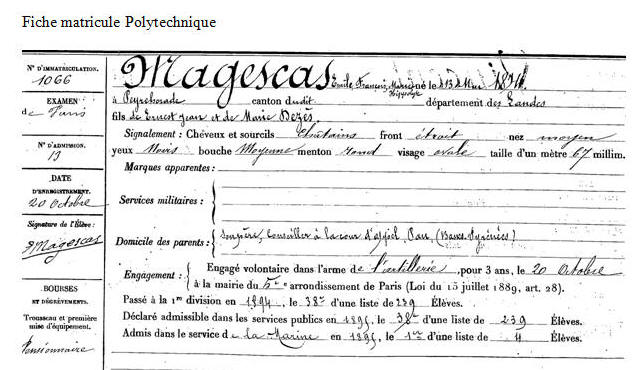 Fiche matricule Polytechnique
N° D'IMMATRICULATION.
1066
EXAMEN
de Paris
N° D'ADMISSION.
13
DATE
D'ENREGISTREMENT.
20 Octobre
Signature de l'Élève :
Magescas
BOURSES
ET DÉGRÈVEMENTS.
Trousseau et première
mise d'équipement.
Pensionnaire
Magescas Emile, François, Marie, Hippolyte né le 13 Mai 1874
à Peyrehorade canton dudit département des Landes
fils de Ernest Jean et de Marie Bezès
Signalement : Cheveux et sourcils Châtains front étroit nez moyen
yeux bouche Moyenne menton rond visage ovale taille d'un mètre 67 millim.
Marques apparentes :
Services militaires :
Domicile des parents : Son père, Conseiller à la cour d'appel, Pau, (Basses-Pyrénées)
Engagement : Engagé volontaire dans l'arme de l'artillerie, pour 3 ans, le 20 Octobre
à la mairie du 5e arrondissement de Paris (Loi du 15 juillet 1889, art. 28).
Passé à la 1re division en 1894, le 38e d'une liste de 239 Élèves.
Déclaré admissible dans les services publics en 1895, le 38e d'une liste de 239 Élèves.
Admis dans le service de la Marine en 1895, le 1er d'une liste de 4 Élèves.